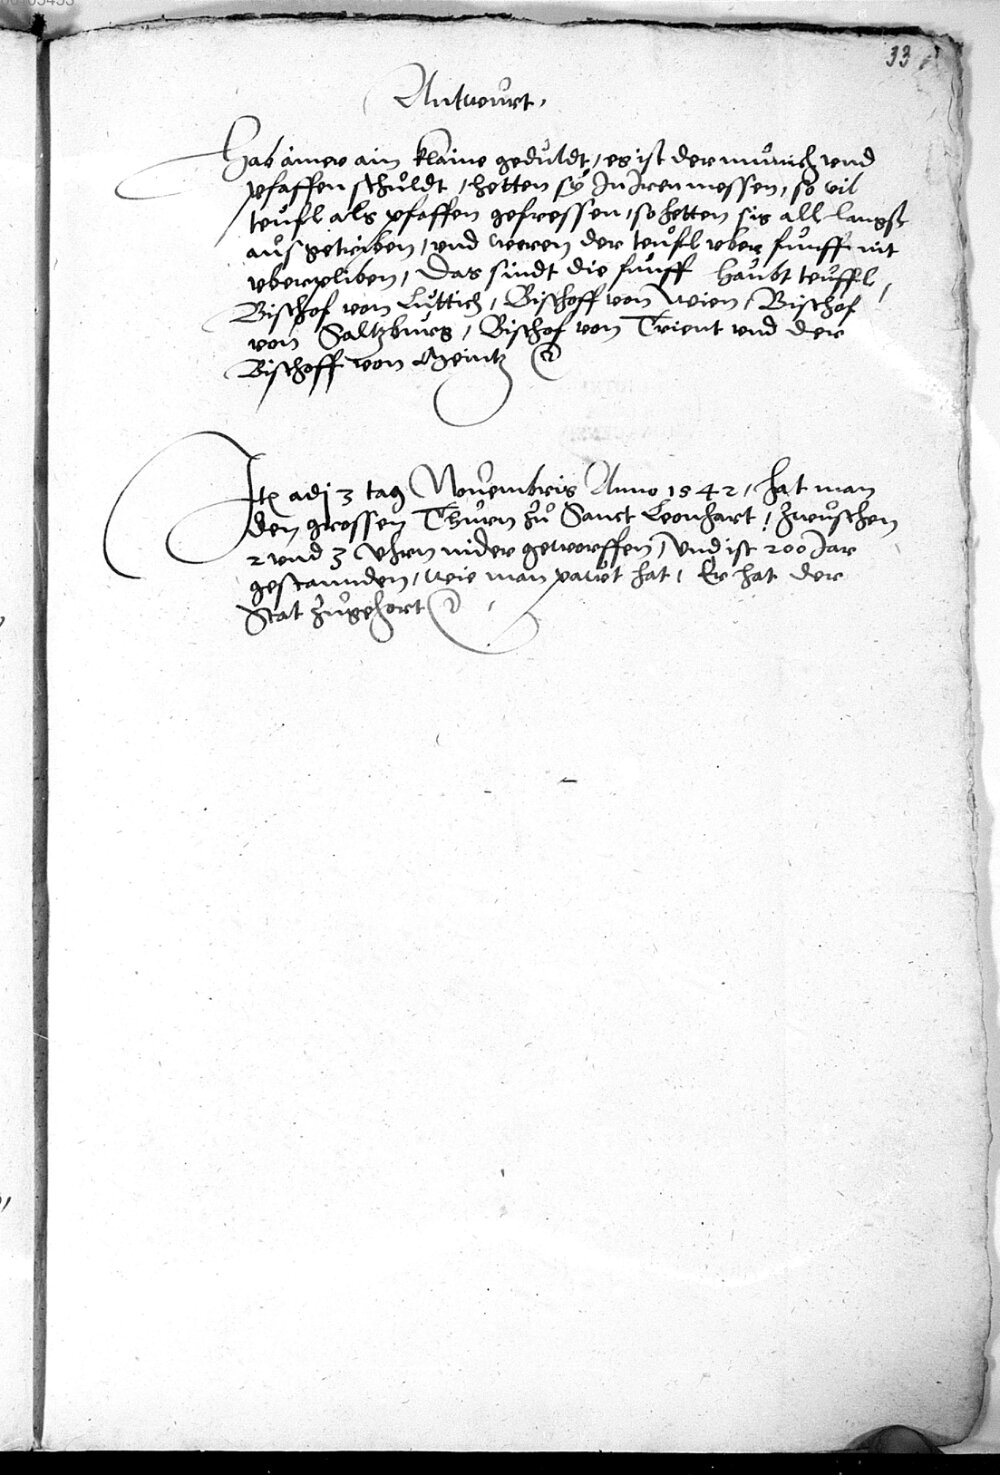 33
Antwurt,
Hab imer ain klaine geduldt, es ist der munich vnd
pfaffen schuldt, hetten sÿ In Iren messen, so vil
teufl als pfaffen gefressen, so hetten sis all langst
ausgetriben, vnd weren der teufl vber funff nit
vberpliben, Das sindt die funff haubt teuffl,
Bischof von Luttich, Bischoff von Wien, Bischof
von Saltzburg, Bischof von Trient vnd der
Bischoff von Meintz
Itē adj 3 tag Nouembris Anno 1542, hat man
den grossen Thurn zu Sanct Leonhart, zwuschen
2 vnd 3 Uhrn nider geworffen, Vnd ist 200 Jar
gestannden, wie man pawt hat, Er hat der
Stat zugehort